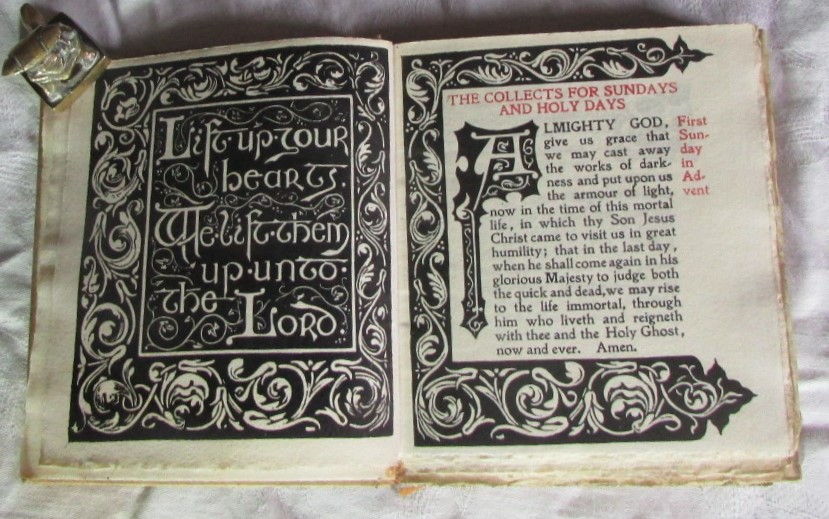 Lift·up·your
hearts.
We·lift·them
up·unto·
the Lord.
THE COLLECTS FOR SUNDAYS
AND HOLY DAYS
ALMIGHTY GOD,
give us grace that
we may cast away
the works of dark-
ness and put upon us
the armour of light,
now in the time of this mortal
life, in which thy Son Jesus
Christ came to visit us in great
humility; that in the last day,
when he shall come again in his
glorious Majesty to judge both
the quick and dead, we may rise
to the life immortal, through
him who liveth and reigneth
with thee and the Holy Ghost,
now and ever. Amen.
First
Sun-
day
in
Ad-
vent